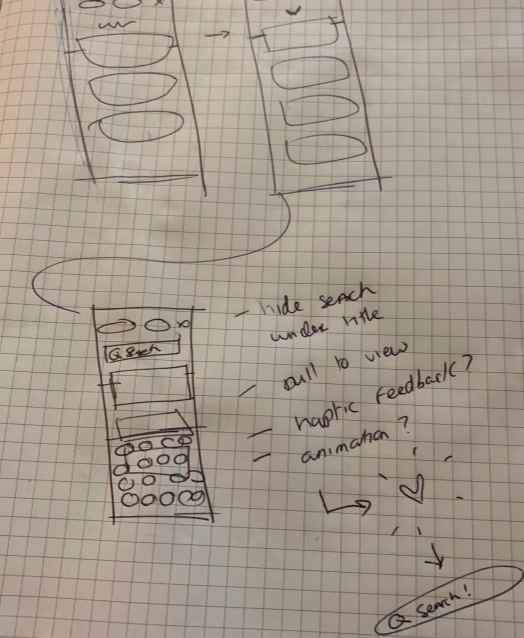 Q Search
- hide search
under title
- pull to view
- haptic feedback?
- animation?
Q Search!